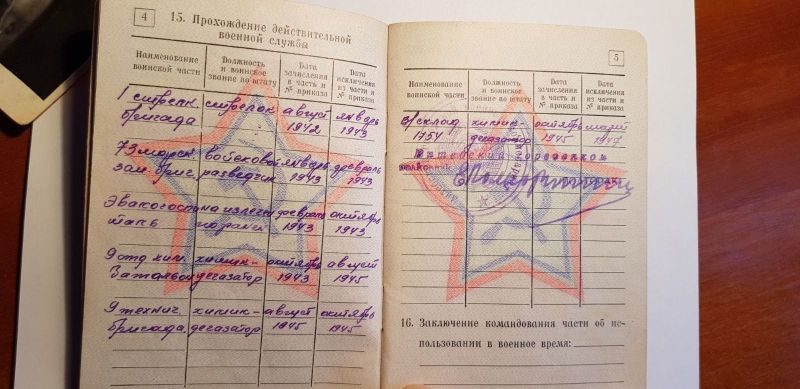 4
15. Прохождение действительной
военной службы
Наименование воинской части
Должность и воинское звание по штату
Дата зачисления в часть и № приказа
Дата исключения из части и № приказа
1 стрелк. стрелок август январь
бригада 1942 1943
73 морск. войсковой январь февраль
бриг. разведчик 1943 1943
Эвакогоспи на излечен февраль октябрь
таль 1943 1943
9 отд. хим. химик- октябрь август
батальон дегазатор 1943 1945
9 технич. химик- август октябрь
бригада дегазатор 1945 1945
5
Наименование воинской части
Должность и воинское звание по штату
Дата зачисления в часть и № приказа
Дата исключения из части и № приказа
склад химик- октябрь март
1754 дегазатор 1945 1947
16. Заключение командования части об ис-
пользовании в военное время: